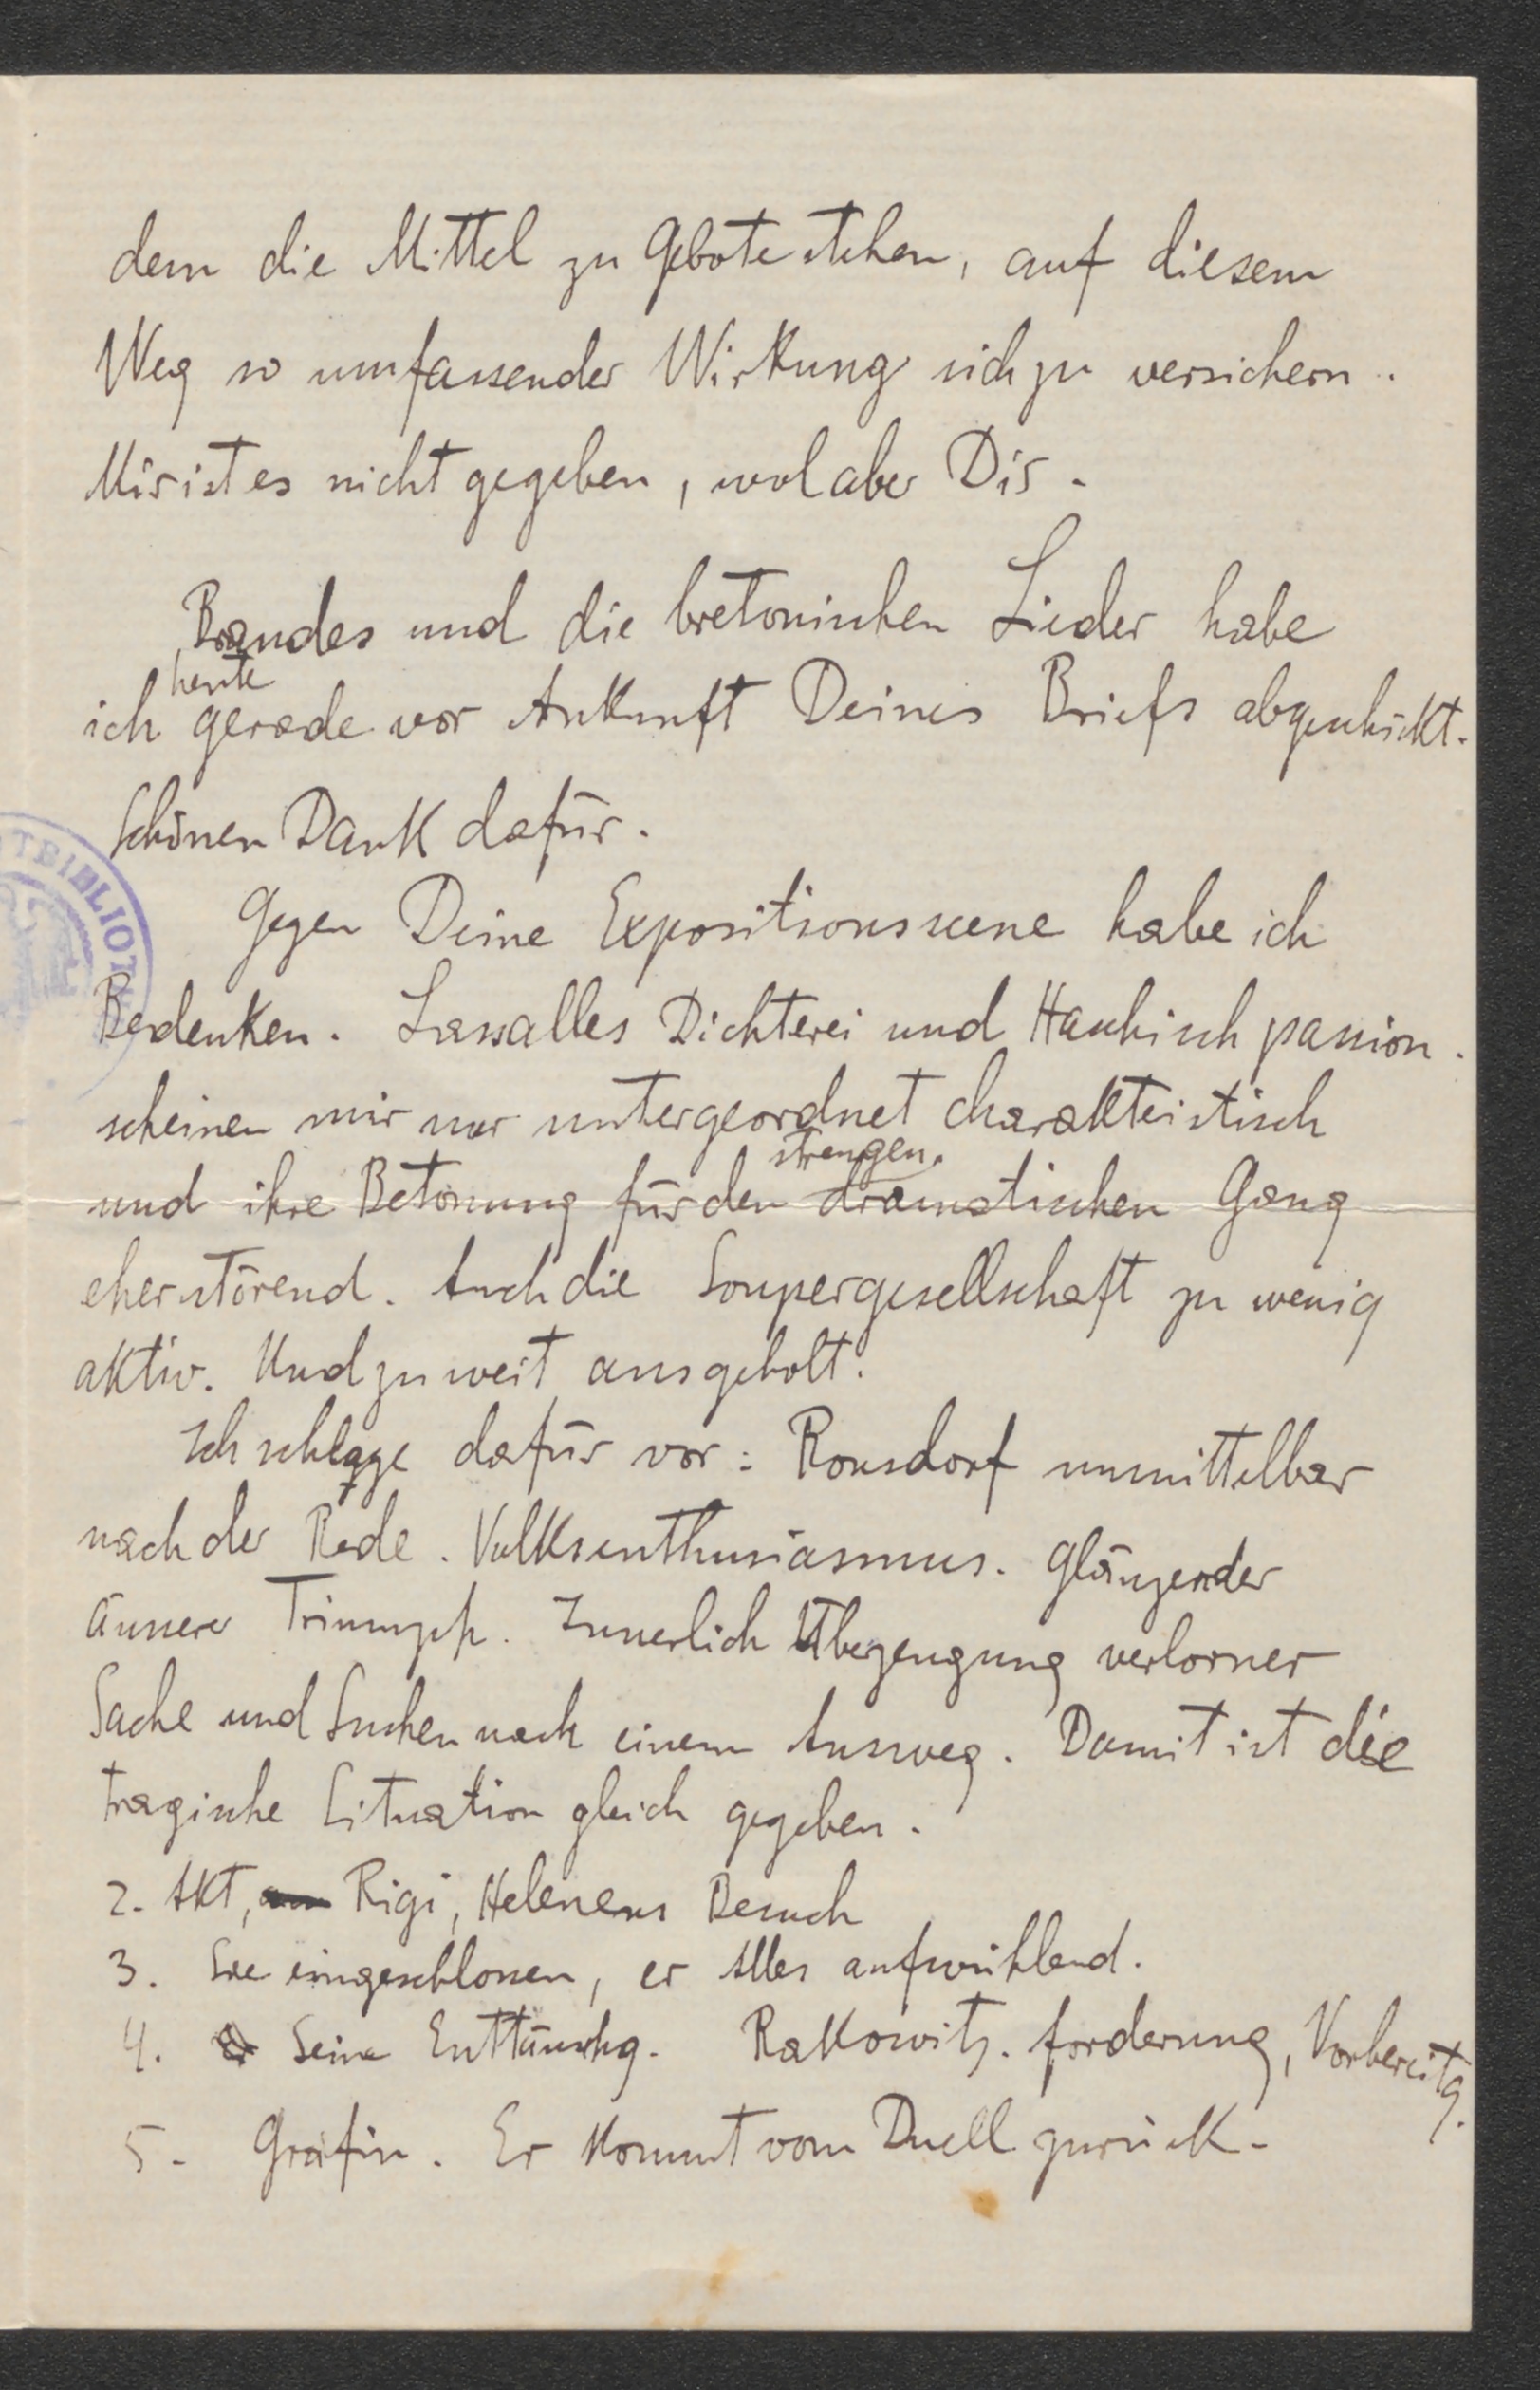 dem die Mittel zu Gebote stehen, auf diesem
Weg so umfassender Wirkung sich zu versichern.
Mir ist es nicht gegeben, wol aber Dir.
Brandes und die bretonischen Lieder habe
heute
ich gerade vor Ankunft Deines Briefs abgeschickt.
Schönen Dank dafür.
TBIBLIOT
Gegen Deine Expositionsscene habe ich
Bedenken. Lassalles Dichterei und Haschischpassion
scheinen mir nur untergeordnet charakteristisch
strengen
und ihre Betonung für den dramatischen Gang
eher störend. Auch die Soupergesellschaft zu wenig
aktiv. Und zu weit ausgeholt.
Ich schlage dafür vor: Ronsdorf unmittelbar
nach der Rede. Volksenthusiasmus. Glänzender
äusserer Triumph. Innerlich Überzeugung verlorner
Sache und Suchen nach einem Ausweg. Damit ist die
tragische Situation gleich gegeben.
2. Akt, Rigi, Helenens Besuch
3. Sie eingeschlossen, er Alles aufwühlend.
4. Seine Enttäuschg. Rakowitz. Forderung, Vorbereitg.
5. Gräfin. Er kommt vom Duell zurück.